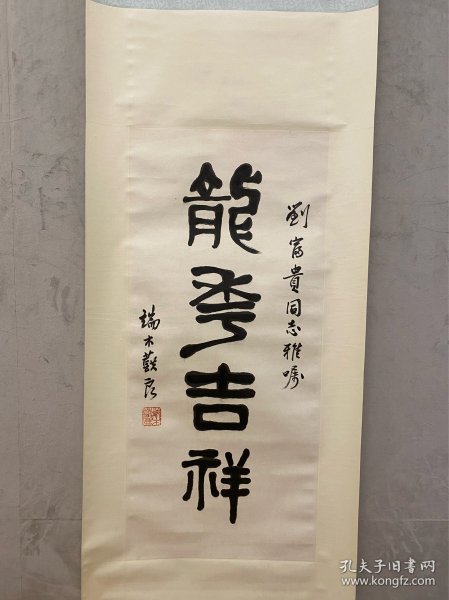 劉富貴同志雅嘱
龍年吉祥
端木蕻良
孔夫子旧书网
www.kongfz.com